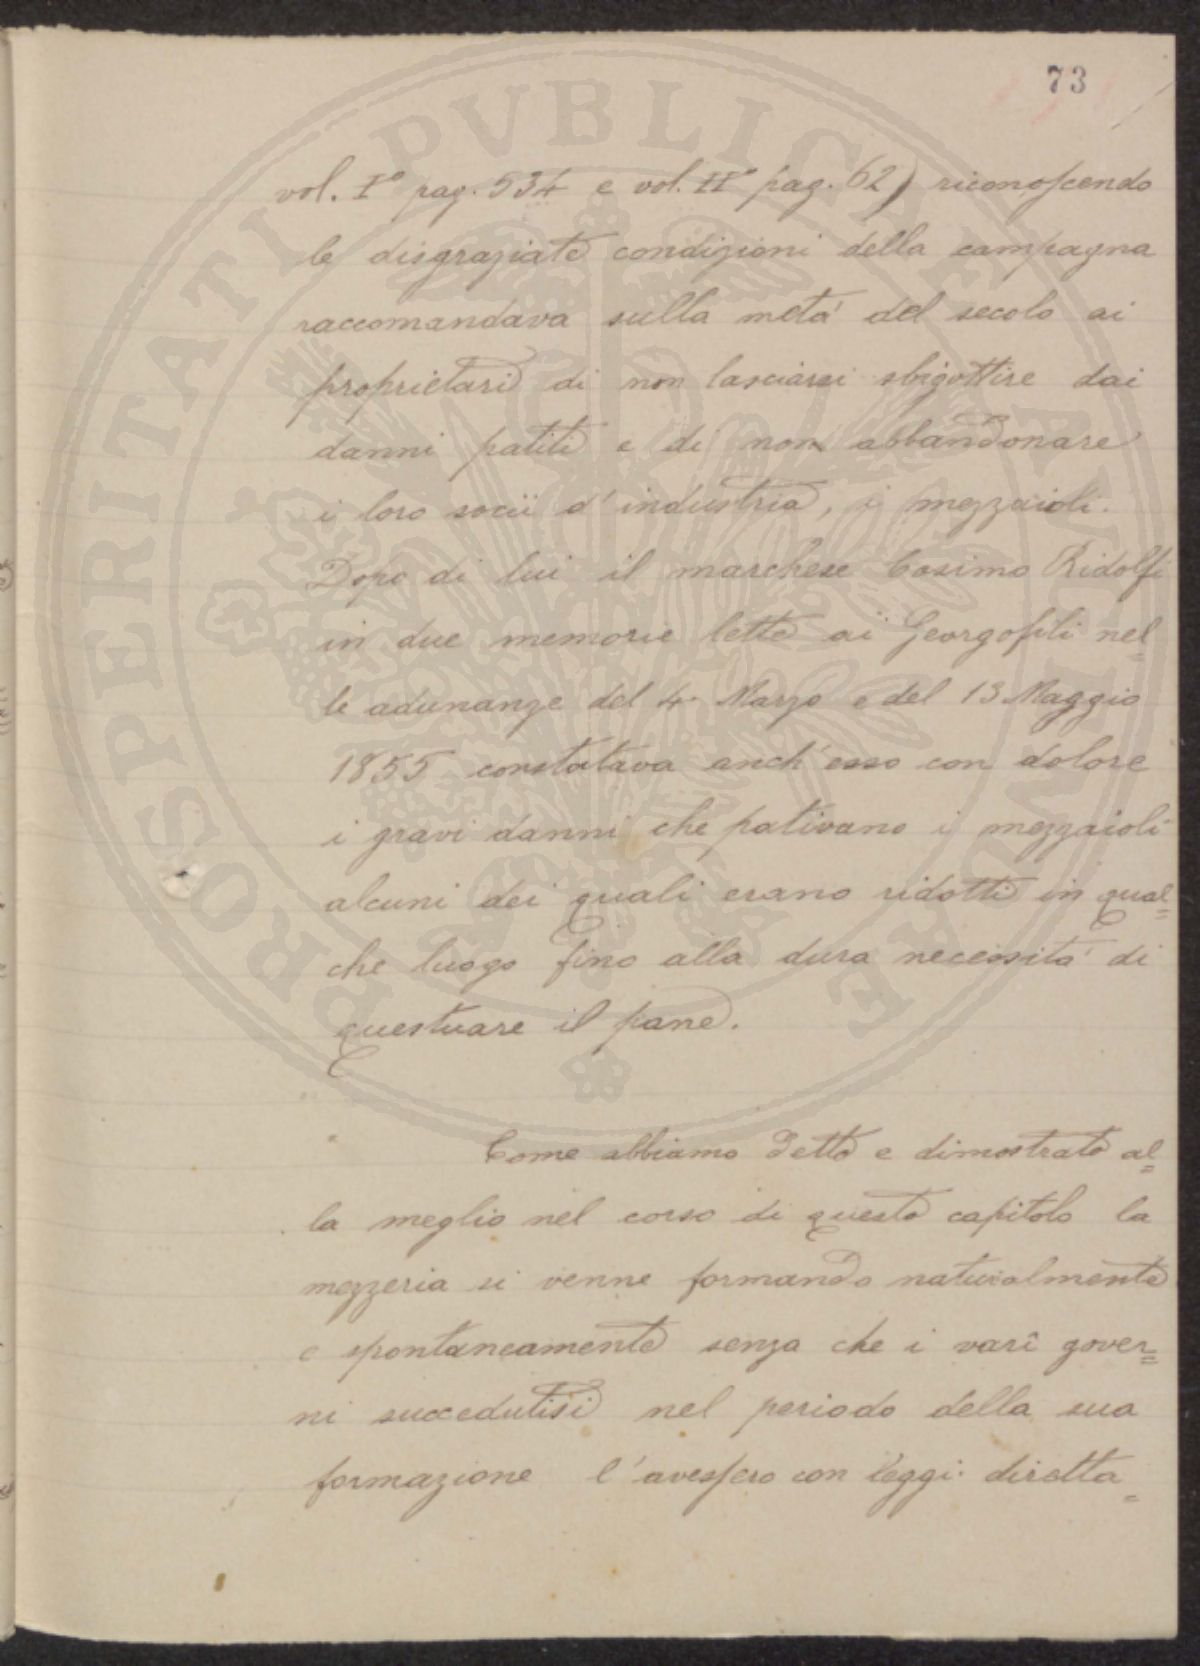 73
vol. I° pag. 534 e vol. II° pag. 62) riconoscendo
le disgraziate condizioni della campagna
raccomandava sulla metà del secolo ai
proprietari di non lasciarsi sbigottire dai
danni patiti e di non abbandonare
i loro socii d'industria, i mezzaioli.
Dopo di lui il marchese Cosimo Ridolfi
in due memorie lette ai Georgofili nel=
le adunanze del 4 Marzo e del 13 Maggio
1855 constatava anch'esso con dolore
i gravi danni che pativano i mezzaioli
alcuni dei quali erano ridotti in qual=
che luogo fino alla dura necessità di
questuare il pane.
Come abbiamo detto e dimostrato al=
la meglio nel corso di questo capitolo la
mezzeria si venne formando naturalmente
e spontaneamente senza che i varî gover=
ni succedutisi nel periodo della sua
formazione l'avessero con leggi diretta=
PROSPERITATI PVBLICAE AVGENDAE